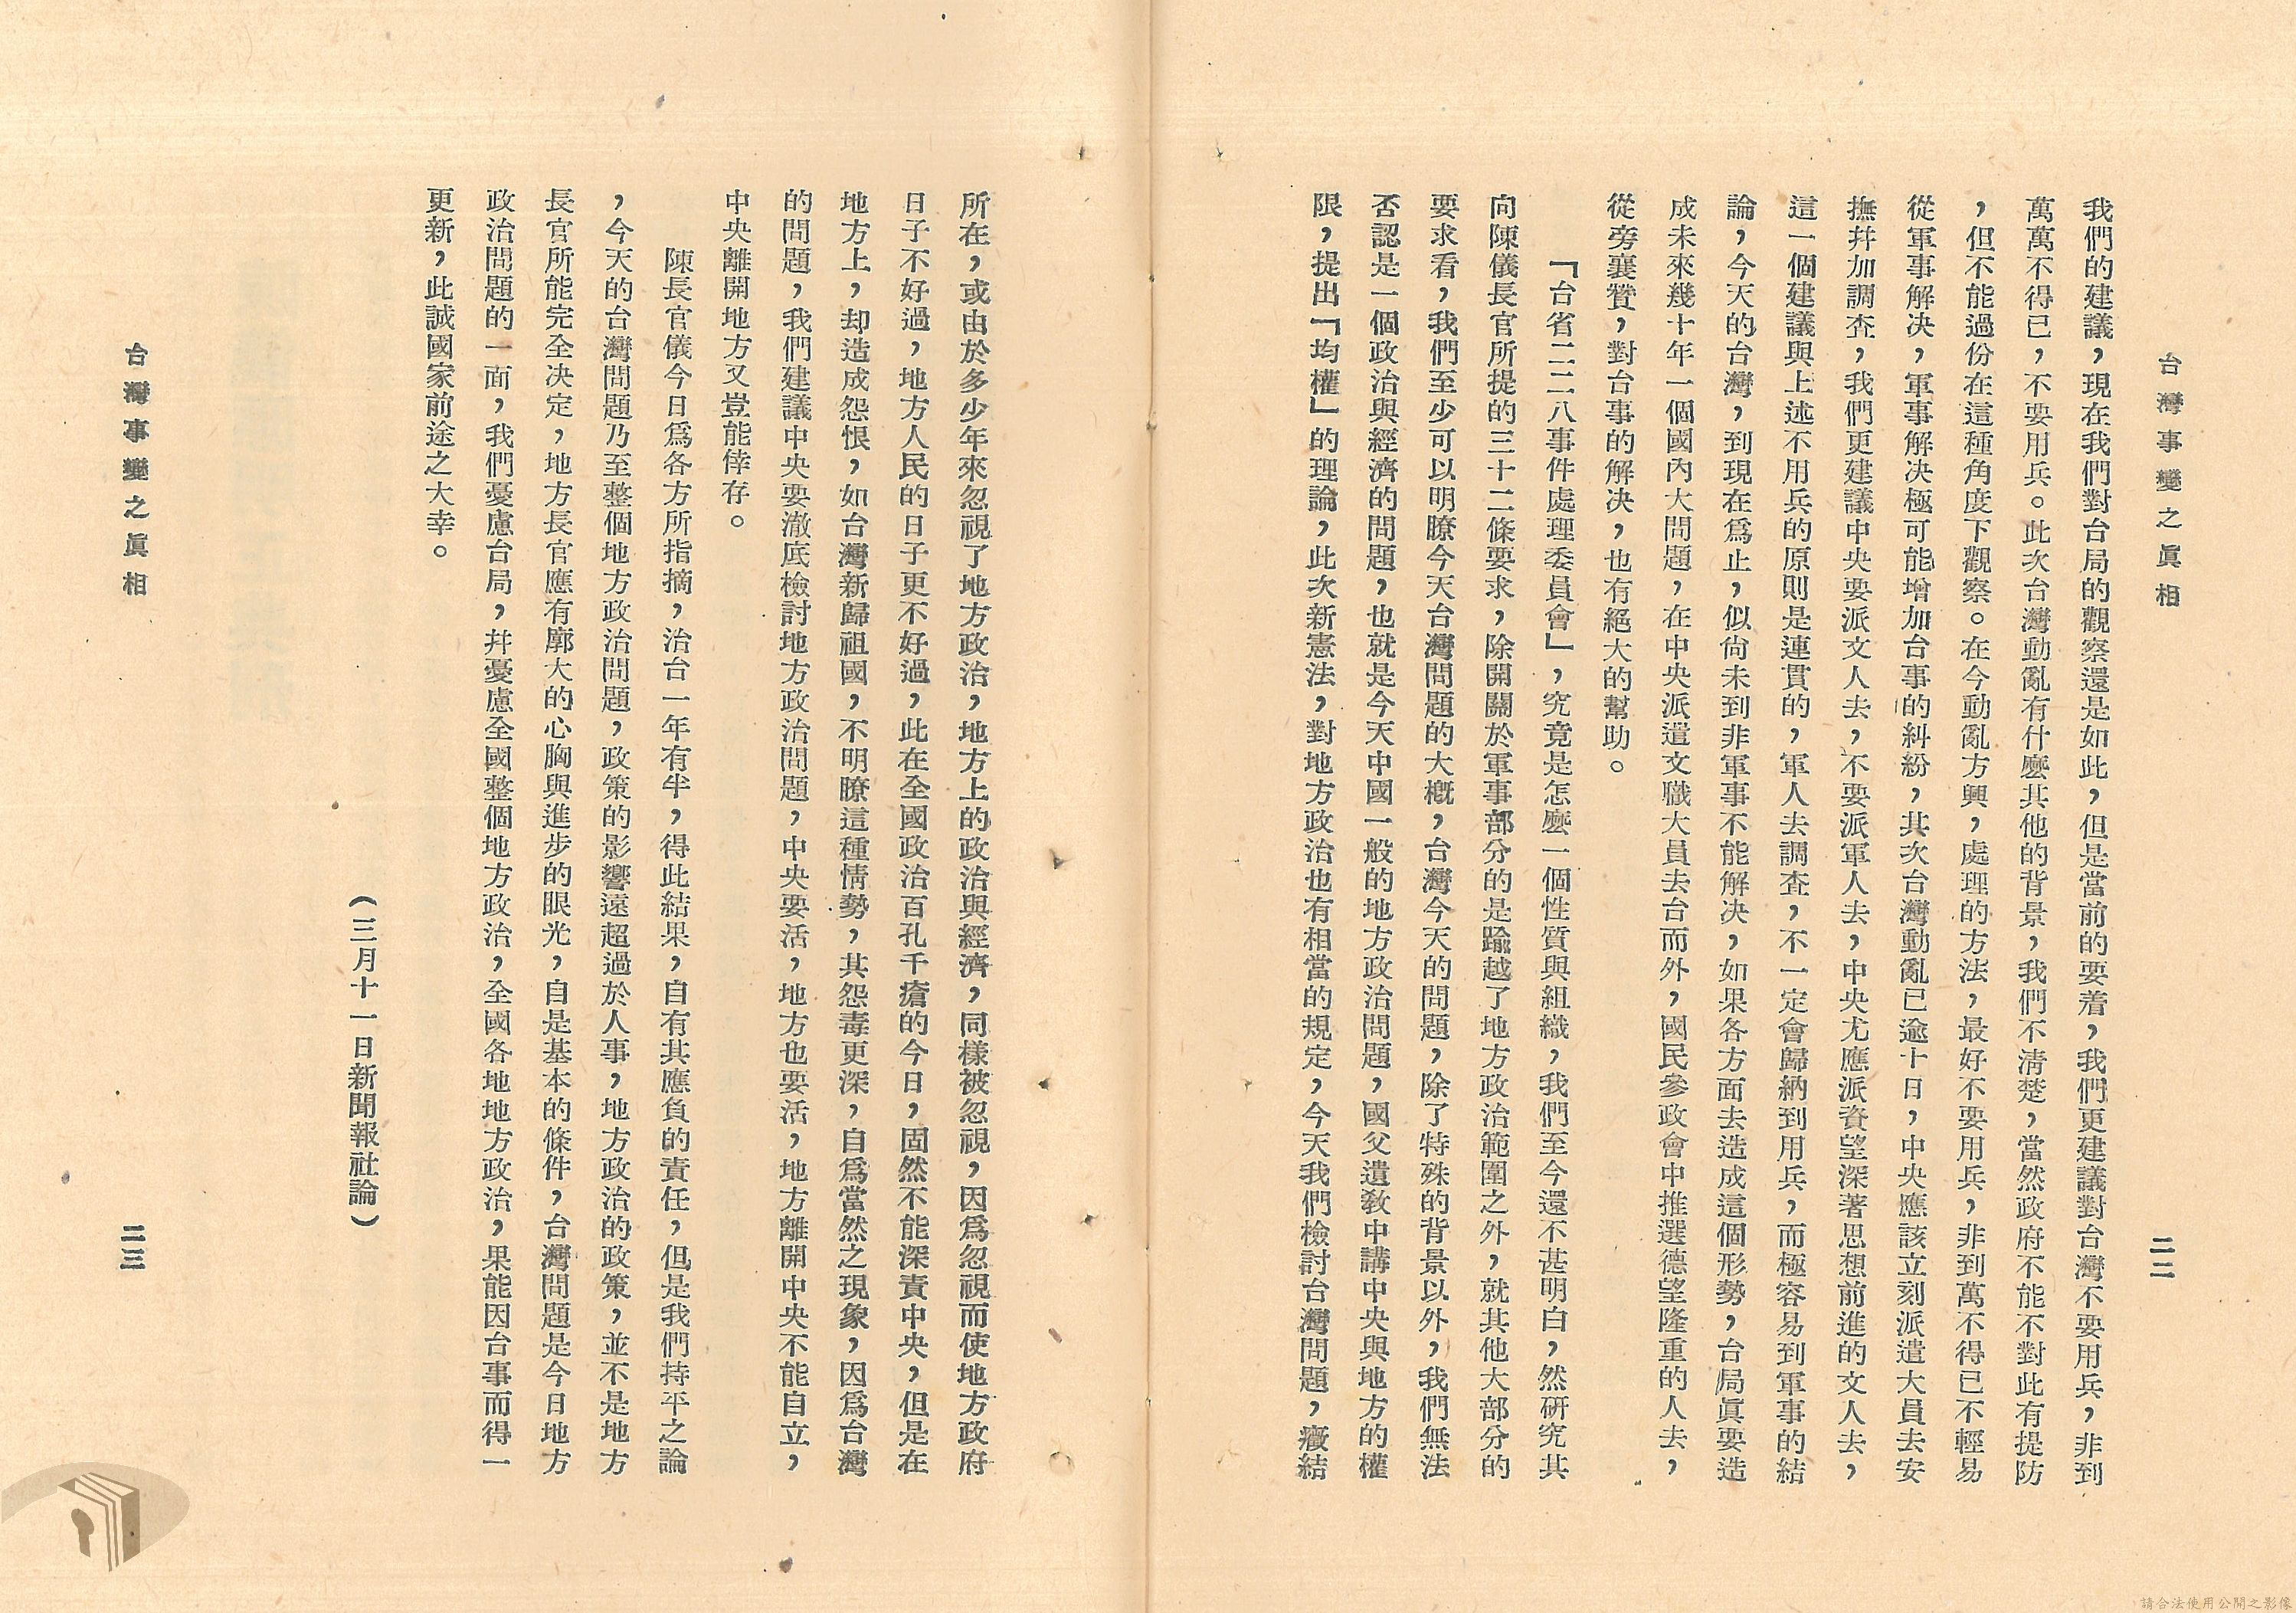 台灣事變之眞相
二二
我們的建議，現在我們對台局的觀察還是如此，但是當前的要着，我們更建議對台灣不要用兵，非到
萬萬不得已，不要用兵。此次台灣動亂有什麼其他的背景，我們不清楚，當然政府不能不對此有提防
，但不能過份在這種角度下觀察。在今動亂方興，處理的方法，最好不要用兵，非到萬不得已不輕易
從軍事解决，軍事解决極可能增加台事的糾紛，其次台灣動亂已逾十日，中央應該立刻派遣大員去安
撫幷加調査，我們更建議中央要派文人去，不要派軍人去，中央尤應派資望深著思想前進的文人去，
這一個建議與上述不用兵的原則是連貫的，軍人去調査，不一定會歸納到用兵，而極容易到軍事的結
論，今天的台灣，到現在爲止，似尙未到非軍事不能解决，如果各方面去造成這個形勢，台局眞要造
成未來幾十年一個國內大問題，在中央派遣文職大員去台而外，國民參政會中推選德望隆重的人去，
從旁襄贊，對台事的解决，也有絕大的幫助。
「台省二二八事件處理委員會」，究竟是怎麼一個性質與組織，我們至今還不甚明白，然硏究其
向陳儀長官所提的三十二條要求，除開關於軍事部分的是踰越了地方政治範圍之外，就其他大部分的
要求看，我們至少可以明瞭今天台灣問題的大槪，台灣今天的問題，除了特殊的背景以外，我們無法
否認是一個政治與經濟的問題，也就是今天中國一般的地方政治問題，國父遺敎中講中央與地方的權
限，提出「均權」的理論，此次新憲法，對地方政治也有相當的規定，今天我們檢討台灣問題，癥結
所在，或由於多少年來忽視了地方政治，地方上的政治與經濟，同樣被忽視，因爲忽視而使地方政府
日子不好過，地方人民的日子更不好過，此在全國政治百孔千瘡的今日，固然不能深責中央，但是在
地方上，却造成怨恨，如台灣新歸祖國，不明瞭這種情勢，其怨毒更深，自爲當然之現象，因爲台灣
的問題，我們建議中央要澈底檢討地方政治問題，中央要活，地方也要活，地方離開中央不能自立，
中央離開地方又豈能倖存。
陳長官儀今日爲各方所指摘，治台一年有半，得此結果，自有其應負的責任，但是我們持平之論
，今天的台灣問題乃至整個地方政治問題，政策的影響遠超過於人事，地方政治的政策，並不是地方
長官所能完全决定，地方長官應有廓大的心胸與進步的眼光，自是基本的條件，台灣問題是今日地方
政治問題的一面，我們憂慮台局，幷憂慮全國整個地方政治，全國各地地方政治，果能因台事而得一
更新，此誠國家前途之大幸。
（三月十一日新聞報社論）
台灣事變之眞相
二三
請合法使用公開之影像